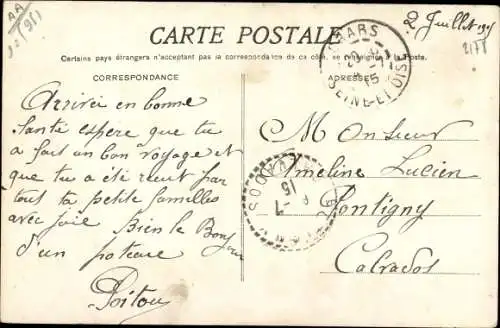 AA
2 Juillet 19
CARTE POSTALE
Certains pays étrangers n'acceptant pas la correspondance de ce côté, se renseigner à la Poste.
CORRESPONDANCE
ADRESSE
MARS
SEINE-ET-OISE
15
Arrivée en bonne
Santé espère que tu
a fait un bon voyage et
que tu a été reçut par
tout ta petite familles
avec joie Bien le Bonjour
d'un poteau
Poitou
Monsieur
Ameline Lucien
Pontigny
Calvados
CALVADOS
7
15